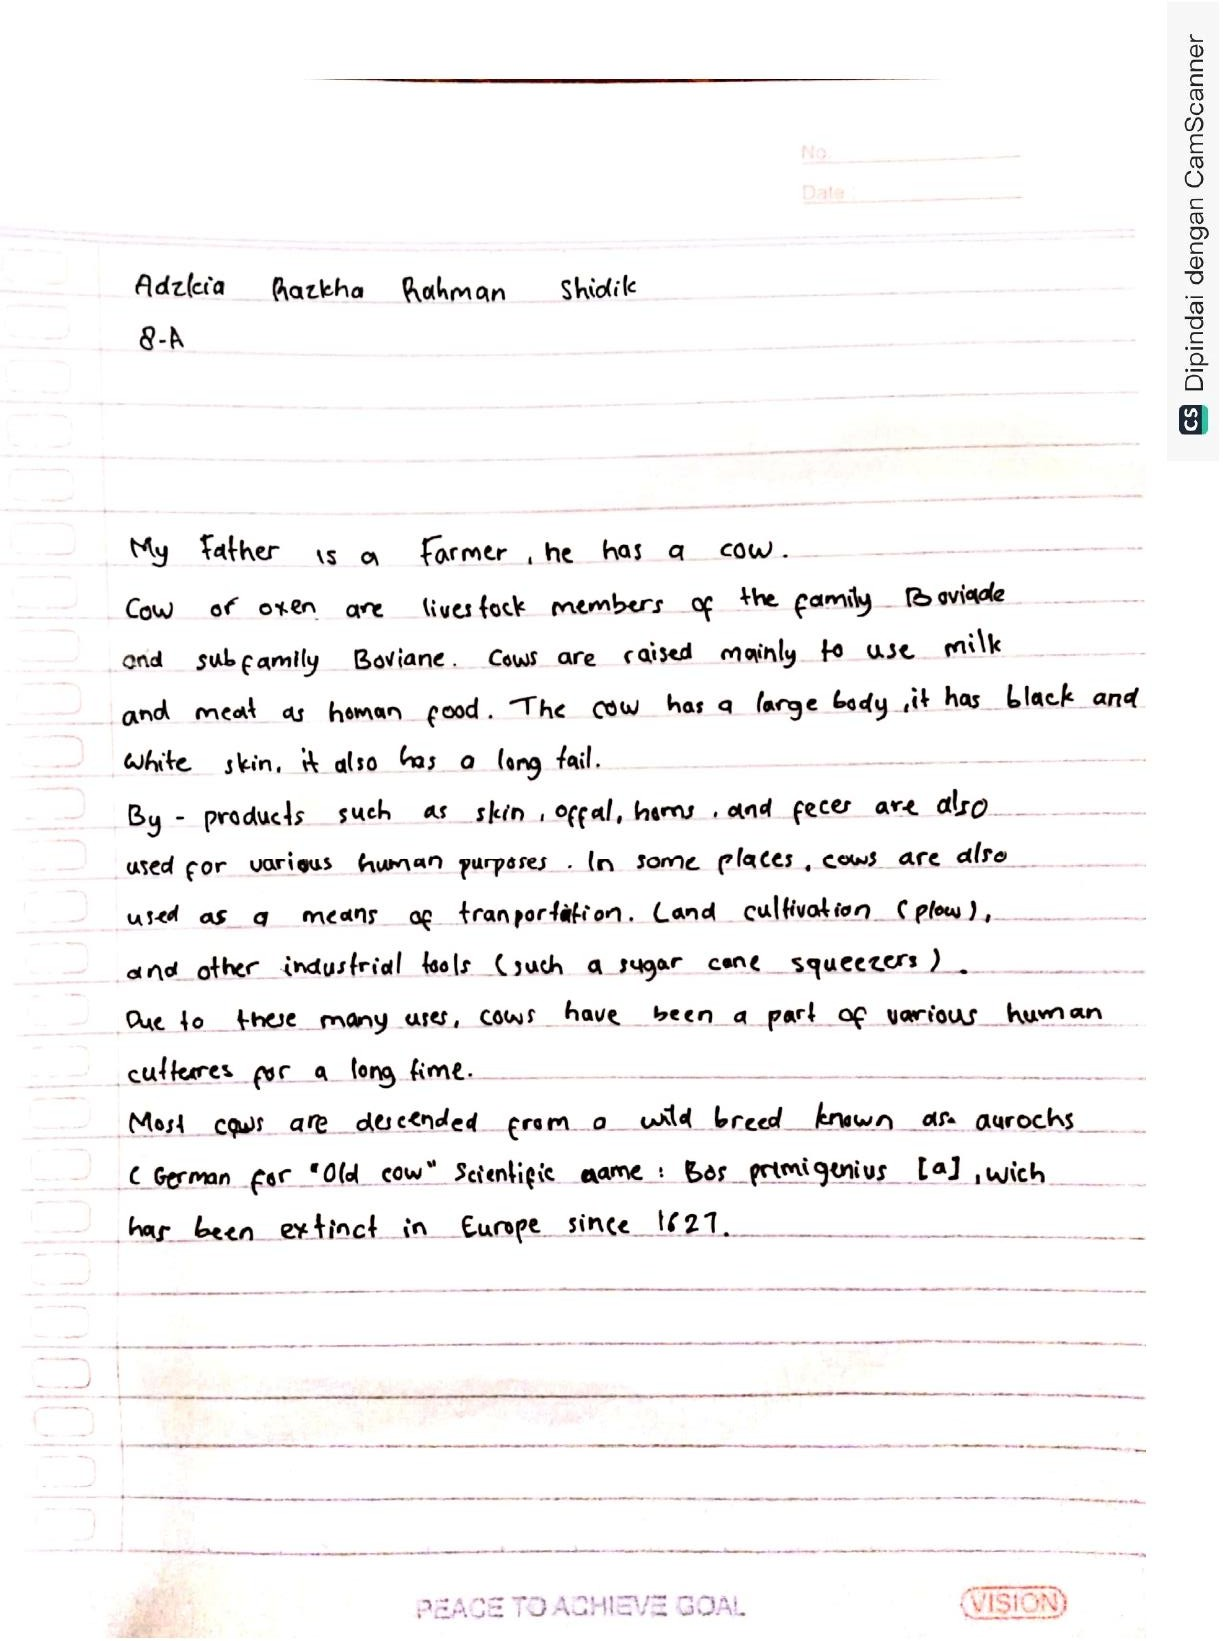 No.
Date :
Adzkia Razkha Rahman Shidik
8-A
My Father is a Farmer, he has a cow.
Cow or oxen are livestock members of the family Boviade
and subfamily Boviane. Cows are raised mainly to use milk
and meat as homan food. The cow has a large body, it has black and
white skin, it also has a long tail.
By - products such as skin, offal, horns, and feces are also
used for various human purposes. In some places, cows are also
used as a means of tranportation. Land cultivation (plow),
and other industrial tools (such a sugar cane squeezers).
Due to these many uses, cows have been a part of various human
for a long time.
Most cows are descended from a wild breed known as aurochs
( German for "Old cow" Scientific name : Bos primigenius [a], wich
has been extinct in Europe since 1627.
PEACE TO ACHIEVE GOAL
VISION
CS Dipindai dengan CamScanner